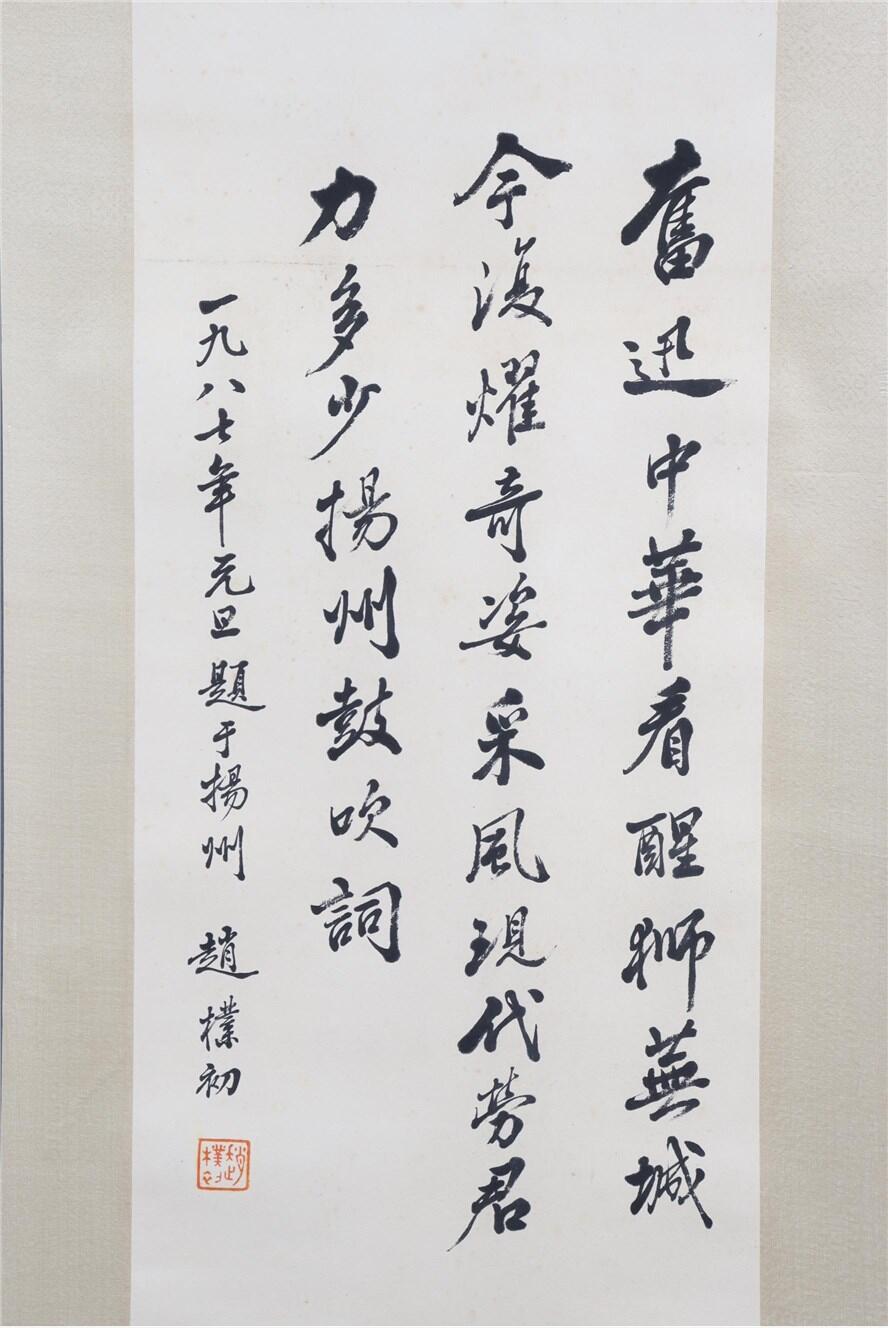 奮迅中華看醒獅蕪城
今復耀奇姿采風現代勞君
力多少揚州鼓吹詞
一九八七年元旦題于揚州 趙樸初
趙樸初